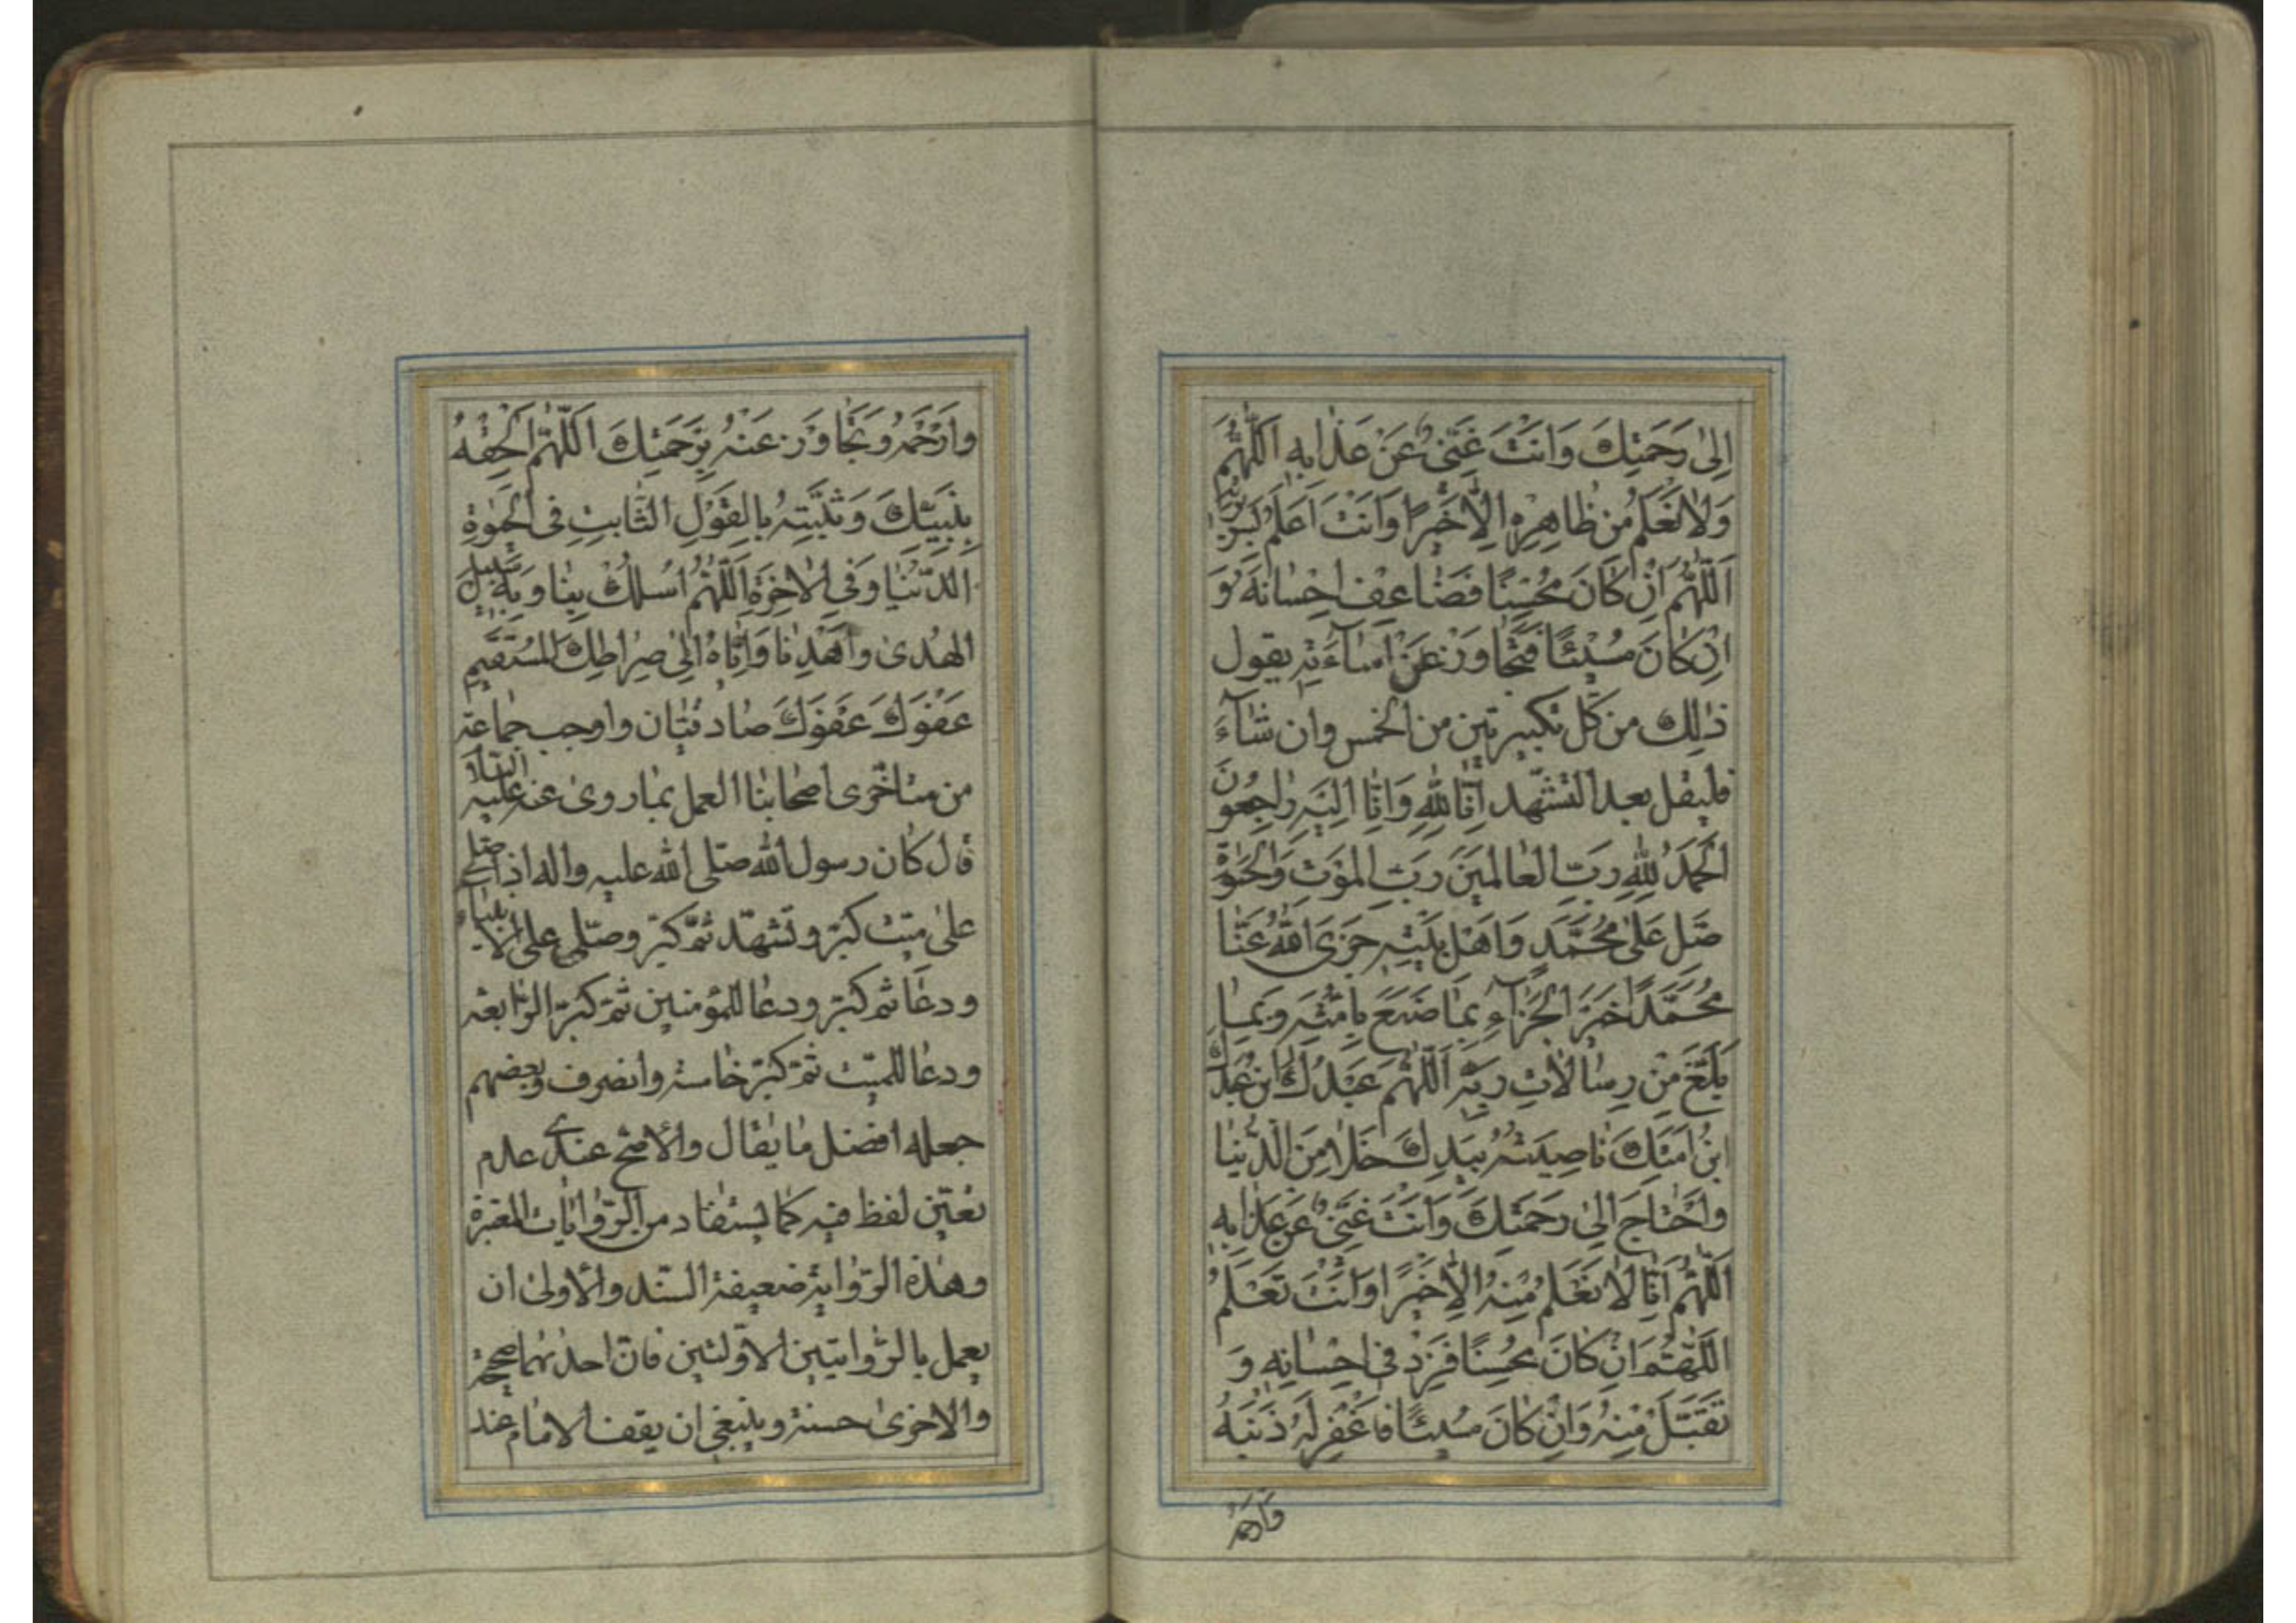 اِلىٰ رَحْمَتِكَ وَاَنْتَ غَنِیٌّ عَنْ عَذابِهِ اَللّٰهُمَّ
وَلا نَعْلَمُ مِنْ ظاهِرِهِ اِلّا خَيْرًا وَاَنْتَ اَعْلَمُ بِسَرِيرَتِهِ
اَللّٰهُمَّ اِنْ كانَ مُحْسِنًا فَضاعِفْ اِحْسانَهُ وَ
اِنْ كانَ مُسِيئًا فَتَجاوَزْ عَنْ اِسآءَتِهِ يقول
ذٰلِك من كل تكبيرتين من الخمس وان شآءَ
فليقل بعد التشهّد اِنّا لِلّٰهِ وَاِنّا اِلَيْهِ راجِعُونَ
اَلْحَمْدُ لِلّٰهِ رَبِّ الْعالَمِينَ رَبِّ الْمَوْتِ وَالْحَيٰوةِ
صَلِّ عَلىٰ مُحَمَّدٍ وَاَهْلِ بَيْتِهِ جَزَى اللّٰهُ عَنّا
مُحَمَّدًا خَيْرَ الْجَزآءِ بِما صَنَعَ بِاُمَّتِهِ وَبِما
بَلَّغَ مِنْ رِسالاتِ رَبِّهِ اَللّٰهُمَّ عَبْدُكَ ابْنُ عَبْدِكَ
ابْنُ اَمَتِكَ ناصِيَتُهُ بِيَدِكَ خَلا مِنَ الدُّنْيا
وَاحْتاجَ اِلىٰ رَحْمَتِكَ وَاَنْتَ غَنِیٌّ عَنْ عَذابِهِ
اَللّٰهُمَّ اِنّا لا نَعْلَمُ مِنْهُ اِلّا خَيْرًا وَاَنْتَ تَعْلَمُ
اَللّٰهُمَّ اِنْ كانَ مُحْسِنًا فَزِدْ فى اِحْسانِهِ وَ
تَقَبَّلْ مِنْهُ وَاِنْ كانَ مُسِيئًا فَاغْفِرْ لَهُ ذَنْبَهُ
وَارْحَمْهُ
وارْحَمْهُ وَتَجاوَزْ عَنْهُ بِرَحْمَتِكَ اَللّٰهُمَّ اَلْحِقْهُ
بِنَبِيِّكَ وَثَبِّتْهُ بِالْقَوْلِ الثّابِتِ فِى الْحَيٰوةِ
الدُّنْيا وَفِى الْاخِرَةِ اَللّٰهُمَّ اسْلُكْ بِنا وَبِهِ سَبِيلَ
الْهُدىٰ وَاهْدِنا وَاِيّاهُ اِلىٰ صِراطِكَ الْمُسْتَقِيمِ
عَفْوَكَ عَفْوَكَ صادقتان واوجب جماعة
من متأخّرى اصحابنا العمل بما روى عنه عليه السّلام
قال كان رسول الله صلّى الله عليه واله اذا صلى
على ميّت كبّر وتشهّد ثمّ كبّر وصلّى على الانبياء
ودعا ثم كبّر ودعا للمؤمنين ثمّ كبّر الرّابعة
ودعا للميّت ثمّ كبّر خامسة وانصرف وبعضهم
جعله افضل ما يقال والاصح عندى عدم
تعيّن لفظ فيه كما يستفاد من الرّوايات المعتبرة
وهذه الرّواية ضعيفة السّند والاولىٰ ان
يعمل بالرّوايتين الاوّلتين فانّ احدٰيهما صحيحة
والاخرىٰ حسنة وينبغى ان يقف الامام عند